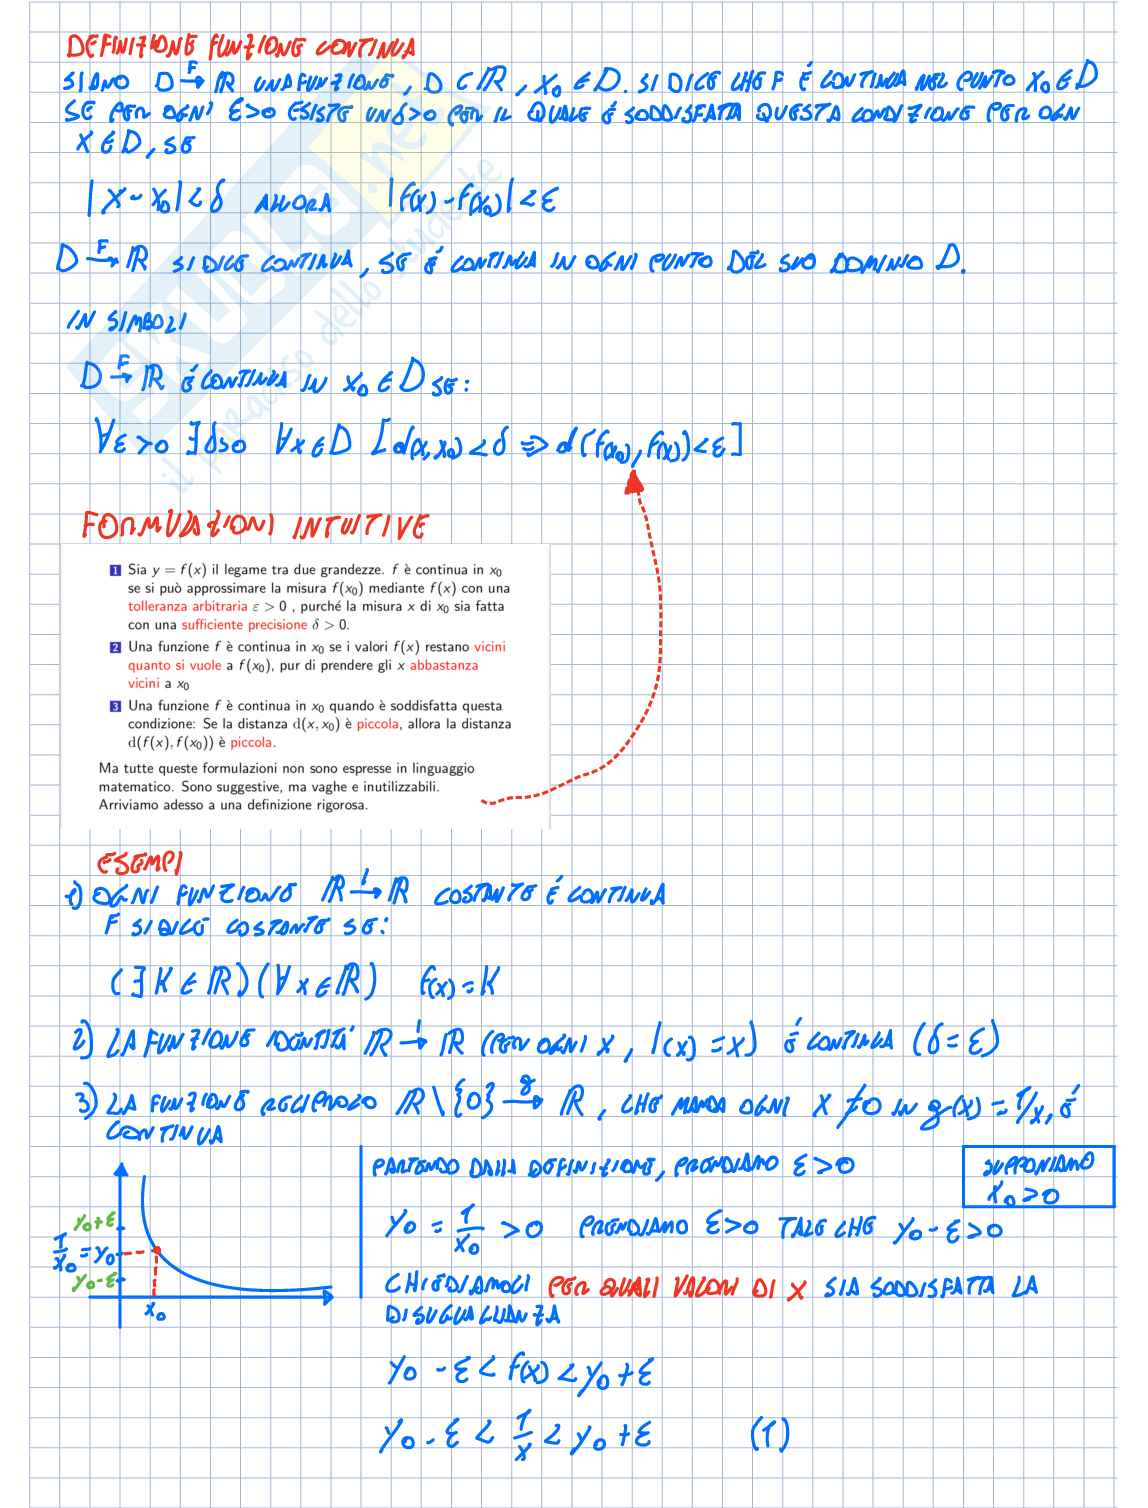 DEFINIZIONE FUNZIONE CONTINUA
SIANO D →F ℝ UNA FUNZIONE, D ⊂ ℝ, X₀ ∈ D. SI DICE CHE F É CONTINUA NEL PUNTO X₀ ∈ D
SE PER OGNI ε>0 ESISTE UN δ>0 PER IL QUALE É SODDISFATTA QUESTA CONDIZIONE PER OGN
X ∈ D, SE
|X - X₀| < δ ALLORA |f(x) - f(x₀)| < ε
D →F ℝ SI DICE CONTINUA, SE É CONTINUA IN OGNI PUNTO DEL SUO DOMINIO D.
IN SIMBOLI
D →F ℝ É CONTINUA IN X₀ ∈ D SE:
∀ε>0 ∃δ>0 ∀x∈D [d(x,x₀)<δ ⇒ d(f(x₀),f(x))<ε]
SKUOLA.net
il paradiso dello studente
FORMULAZIONI INTUITIVE
1 Sia y = f(x) il legame tra due grandezze. f è continua in x₀
se si può approssimare la misura f(x₀) mediante f(x) con una
tolleranza arbitraria ε > 0 , purché la misura x di x₀ sia fatta
con una sufficiente precisione δ > 0.
2 Una funzione f è continua in x₀ se i valori f(x) restano vicini
quanto si vuole a f(x₀), pur di prendere gli x abbastanza
vicini a x₀
3 Una funzione f è continua in x₀ quando è soddisfatta questa
condizione: Se la distanza d(x, x₀) è piccola, allora la distanza
d(f(x), f(x₀)) è piccola.
Ma tutte queste formulazioni non sono espresse in linguaggio
matematico. Sono suggestive, ma vaghe e inutilizzabili.
Arriviamo adesso a una definizione rigorosa.
ESEMPI
1) OGNI FUNZIONE ℝ →f ℝ COSTANTE É CONTINUA
F SI DICE COSTANTE SE:
(∃ K ∈ ℝ) (∀ x ∈ ℝ) f(x) = K
2) LA FUNZIONE IDENTITÀ ℝ →I ℝ (PER OGNI X, I(x) = X) É CONTINUA (δ = ε)
3) LA FUNZIONE RECIPROCO ℝ \ {0} →g ℝ, CHE MANDA OGNI X ≠ 0 IN g(x) = 1/x, É
CONTINUA
y₀+ε
1/x₀ = y₀
y₀-ε
x₀
PARTENDO DALLA DEFINIZIONE, PRENDIAMO ε>0
SUPPONIAMO
X₀ > 0
y₀ = 1/x₀ > 0 PRENDIAMO ε>0 TALE CHE y₀ - ε > 0
CHIEDIAMOCI PER QUALI VALORI DI X SIA SODDISFATTA LA
DISUGUAGLIANZA
y₀ - ε < f(x) < y₀ + ε
y₀ - ε < 1/x < y₀ + ε (1)